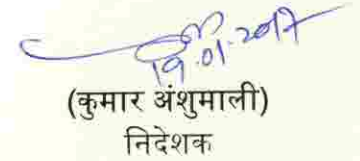 19.01.2017
(कुमार अंशुमाली)
निदेशक